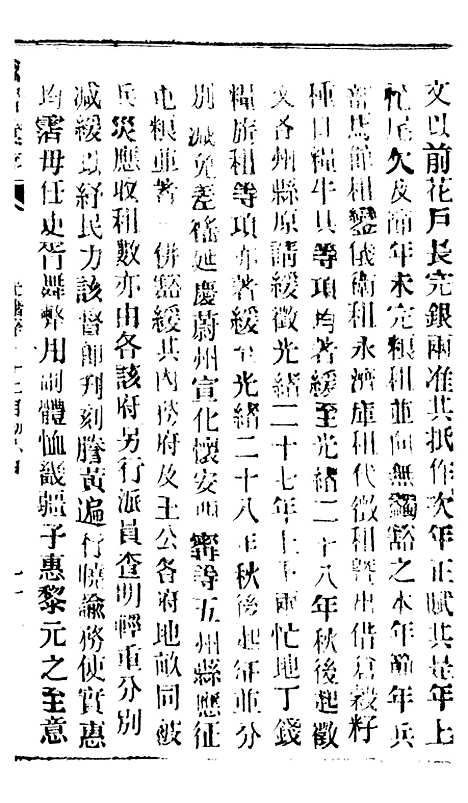 文以前花戶長完銀兩准其抵作次年正賦其是年上
忙尾欠及節年未完糧租並向無蠲豁之本年節年兵
部馬館租鑾儀衛租永濟庫租代徵租暨出借倉穀籽
種口糧牛具等項均著緩至光緒二十八年秋後起徵
文各州縣原請緩徵光緒二十七年上下兩忙地丁錢
糧旗租等項亦著緩至光緒二十八年秋後起徵並分
別減免差徭延慶蔚州宣化懷安西寧等五州縣應征
屯糧並著一併豁緩其內務府及王公各府地畝同被
兵災應收租數亦由各該府另行派員查明輕重分別
減緩以紓民力該督即刊刻謄黃遍行曉諭務使實惠
均霑毋任吏胥舞弊用副體恤畿疆子惠黎元之至意